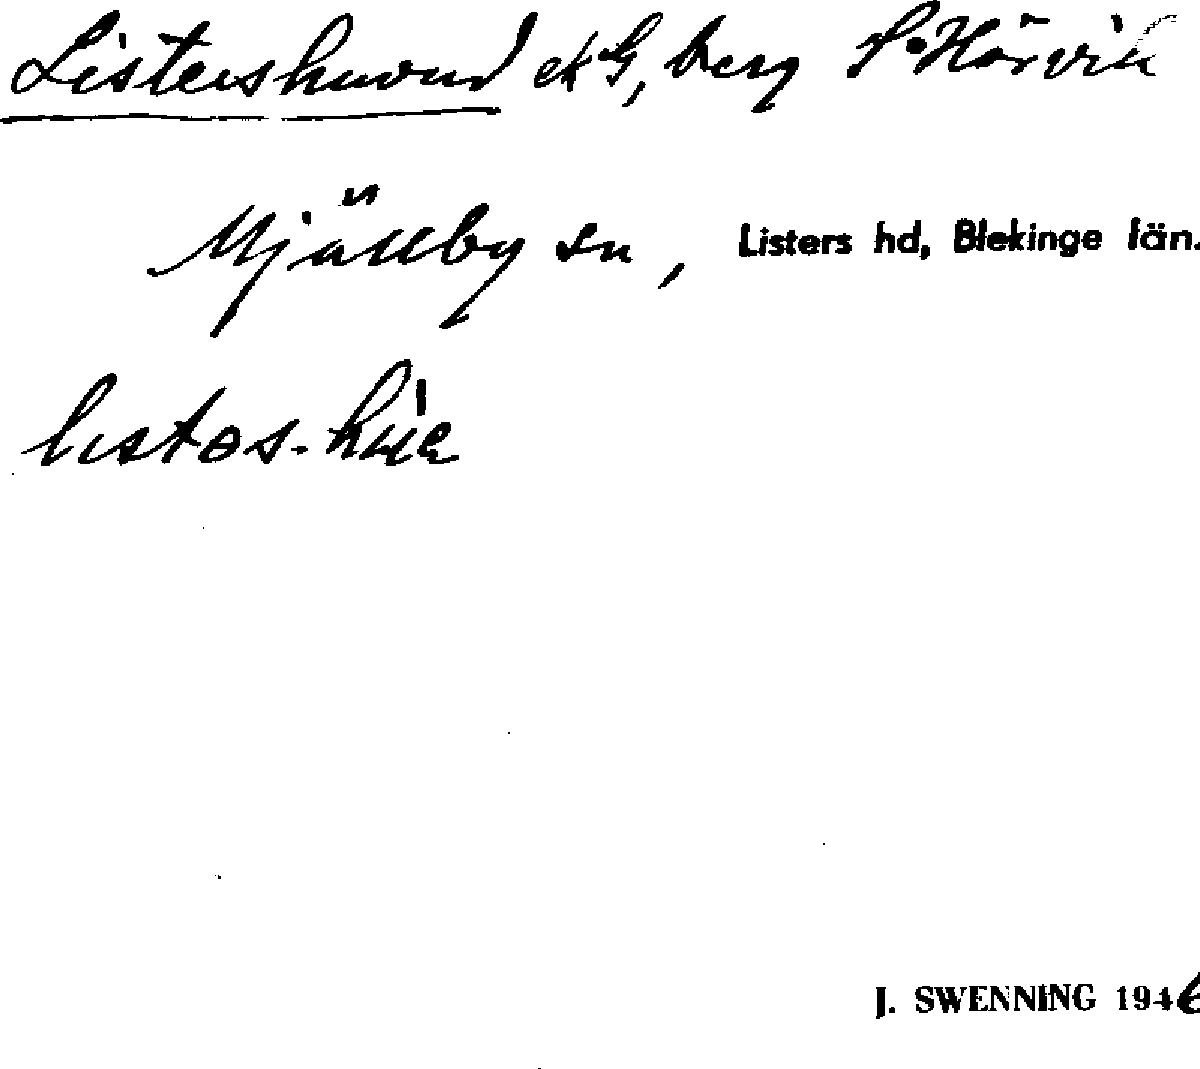 Listershuvud ek G, berg S. Hörvik
Mjällby sn, Listers hd, Blekinge län.
J. SWENNING 1946